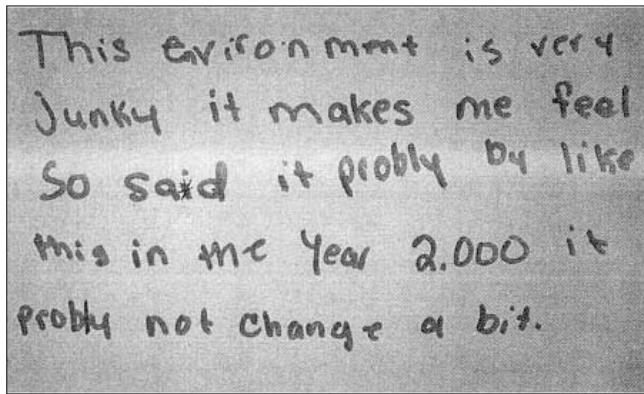 This Evironmmt is very
Junky it makes me feel
So said it probly by like
this in the Year 2.000 it
probly not change a bit.